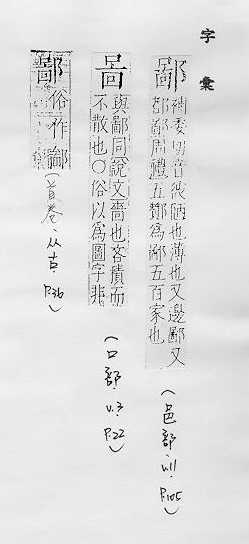 字彙
鄙 補委切音彼陋也薄也又邊鄙又
都鄙周禮五酇為鄙五百家也
(邑部、V.11 P.105)
啚 與鄙同說文嗇也吝積而
不散也○俗以為圖字非
(口部、V.3 P.22)
鄙俗作鄙
(首卷、从古、P.36)